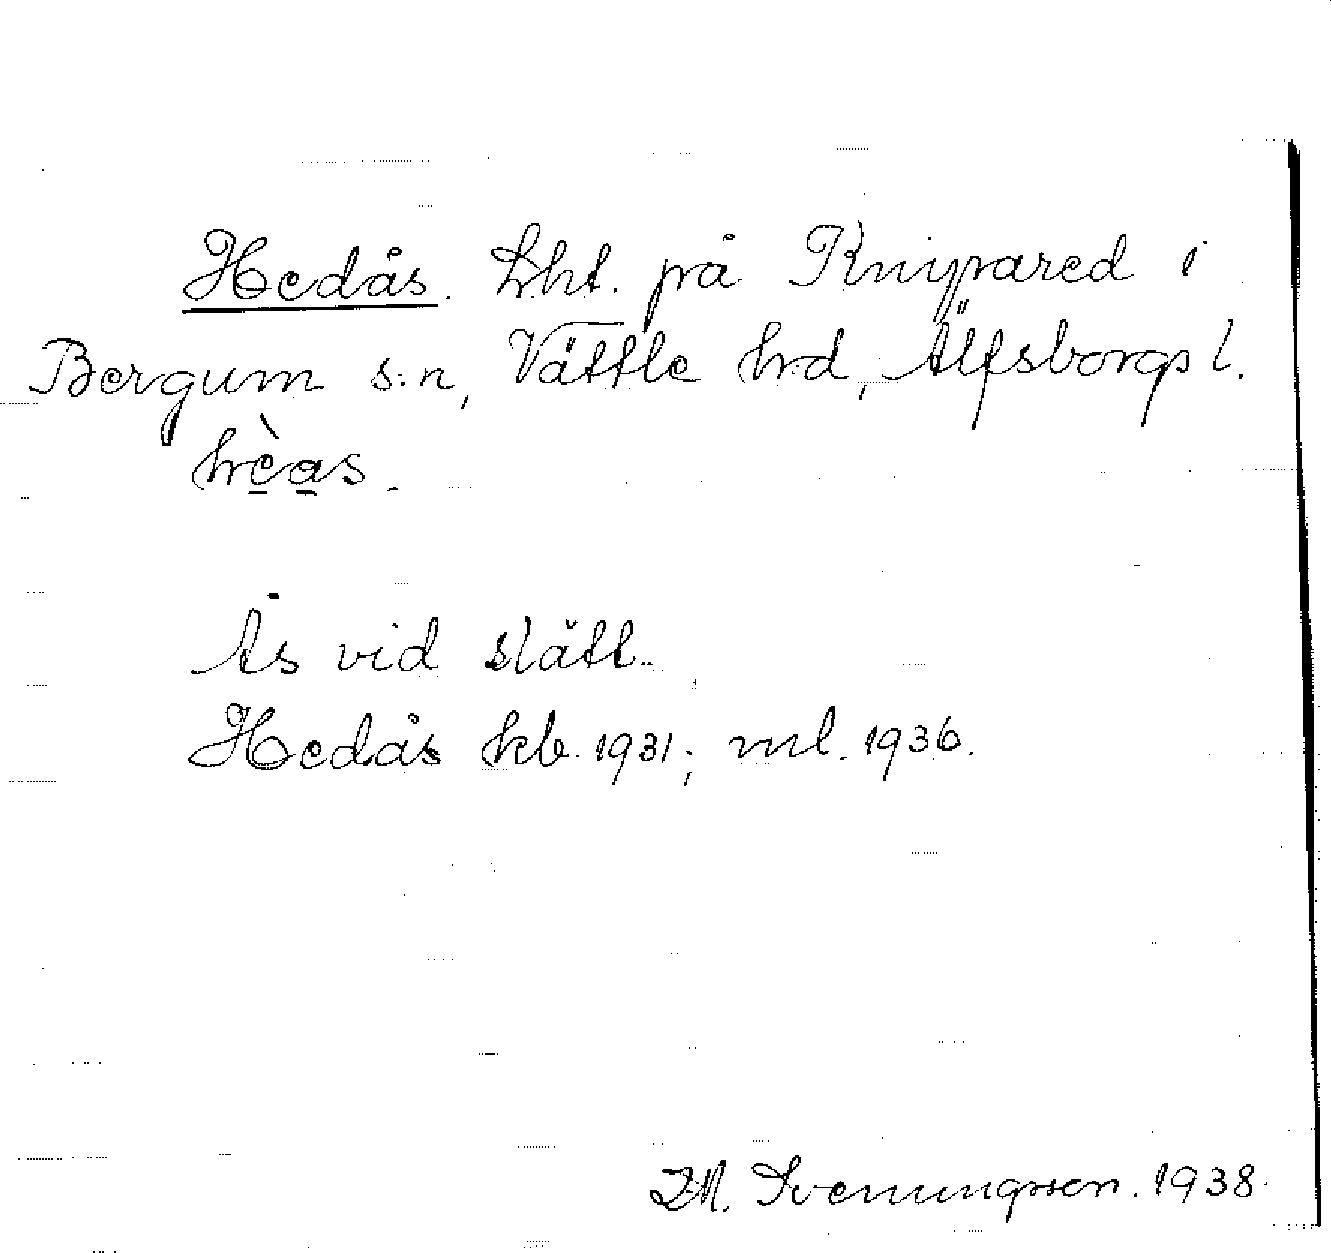 Hedås. Lht. på Knipared i
Bergum s:n, Vättle hrd, Älfsborgs l.
hèas.
Ås vid slätt.
Hedås kb. 1931; ml. 1936.
Svenungsson. 1938.